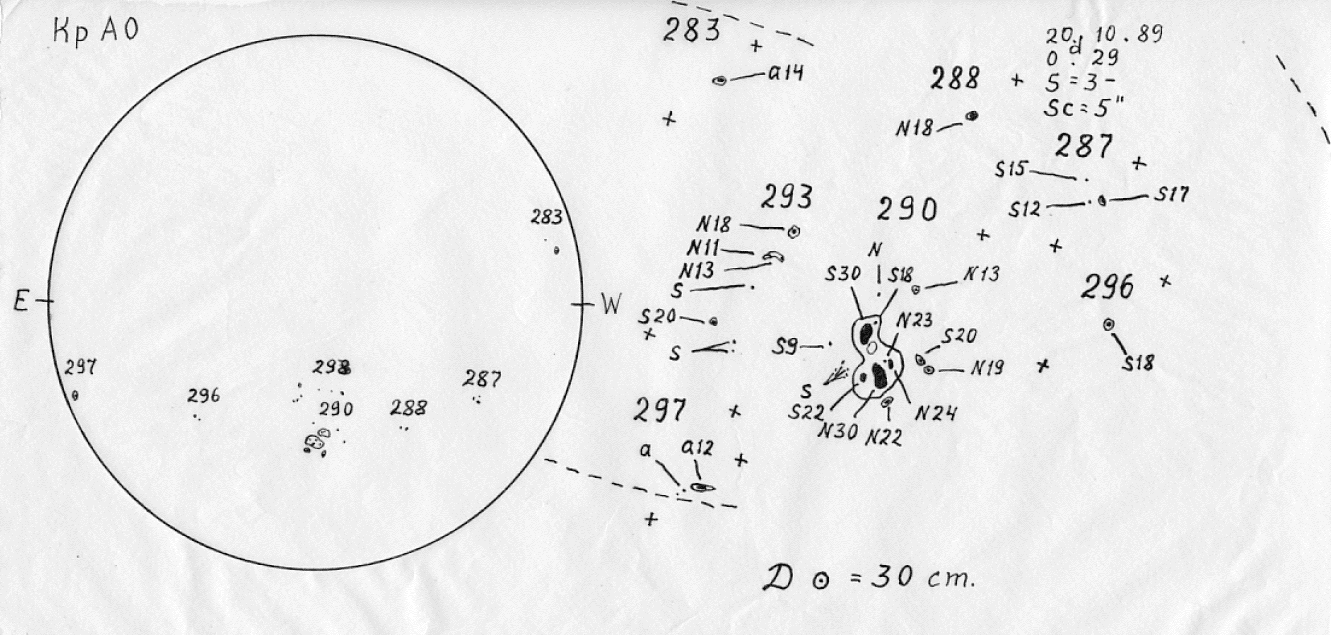 Кр АО
E
W
283
297
296
293
290
288
287
283
a14
20 . 10 . 89
0 d . 29
S = 3 -
Sc = 5"
288
N18
287
S15
S12
S17
293
N18
N11
N13
S
S20
S
290
N
S30
S18
N13
N23
S9
S20
N19
S
S22
N30
N22
N24
296
S18
297
a
a12
D ⊙ = 30 cm.